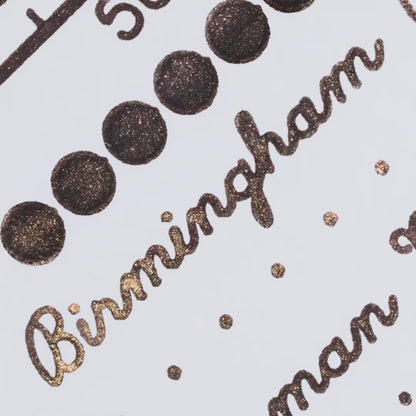 50
Birmingham
man